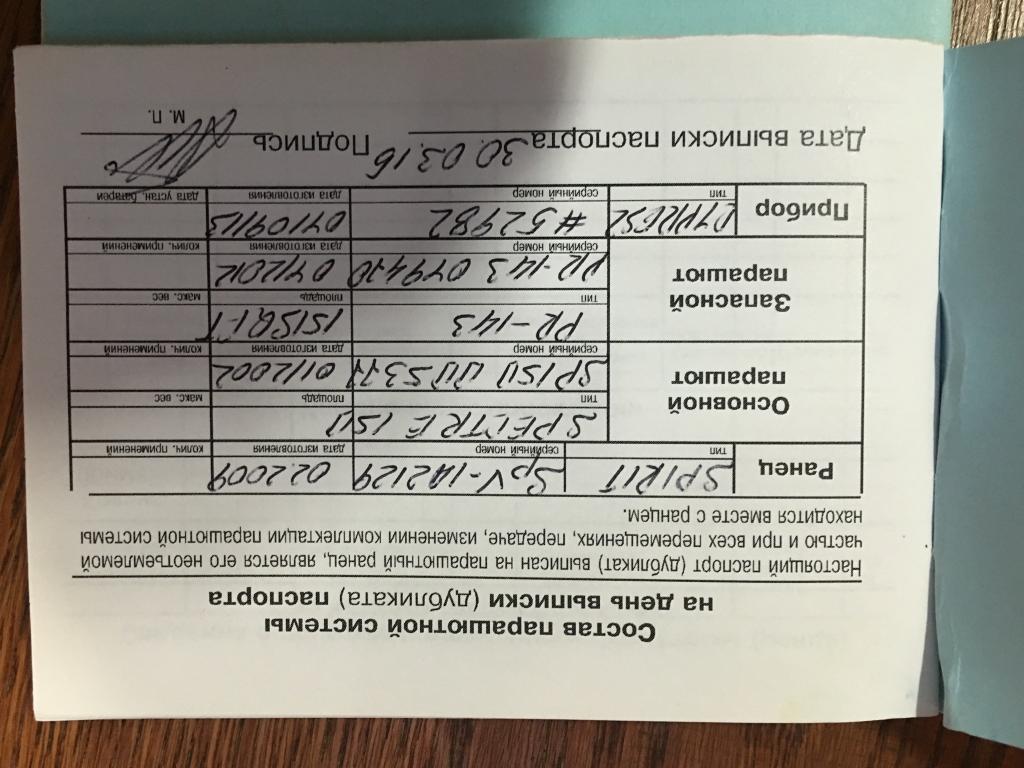 Состав парашютной системы
на день выписки (дубликата) паспорта
Настоящий паспорт (дубликат) выписан на парашютный ранец, является его неотъемлемой
частью и при всех перемещениях, передаче, изменении комплектации парашютной системы
находится вместе с ранцем.
Ранец SPIRIT SpV-1A2129 02.2009
тип серийный номер дата изготовления колич. применений
Основной парашют
SPECTRE 150
тип площадь макс. вес
01/2002
серийный номер дата изготовления колич. применений
Запасной парашют
PR-143 151SQFT
тип площадь макс. вес
PR-143 07/2012
серийный номер дата изготовления колич. применений
Прибор CYPRES2 #52982 04/09/13
тип серийный номер дата изготовления дата устан. батареи
Дата выписки паспорта 30.03.16 Подпись
М. П.